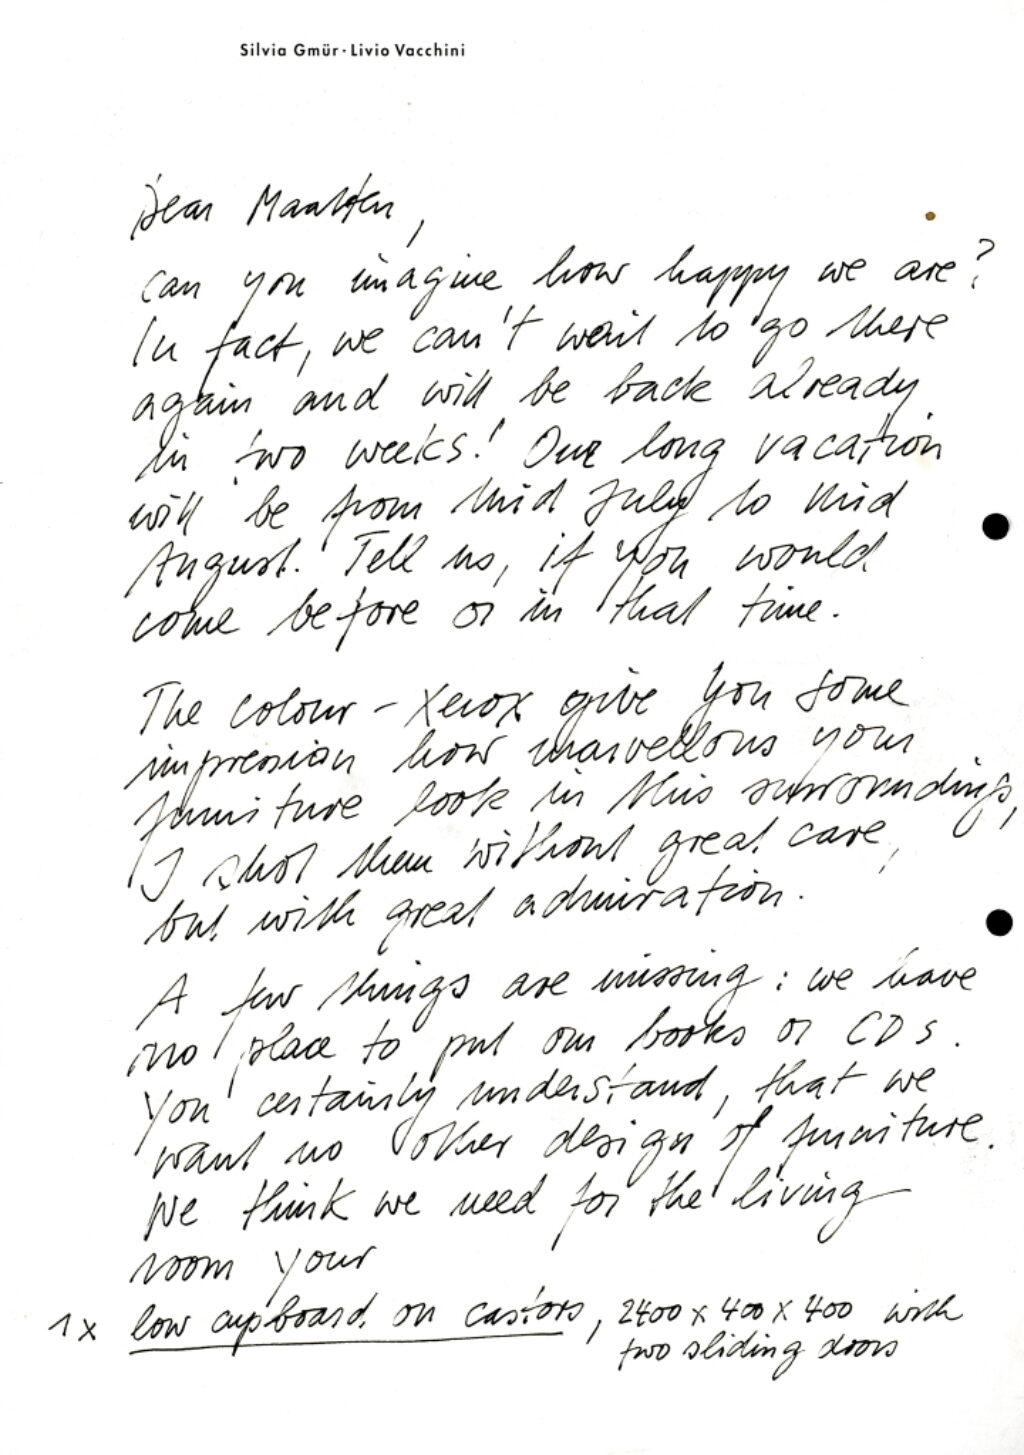 Silvia Gmür · Livio Vacchini
Dear Maarten,
can you imagine how happy we are?
In fact, we can't wait to go there
again and will be back already
in two weeks! Our long vacation
will be from mid July to mid
August. Tell us, if you would
come before or in that time.
The colour - Xerox give you some
impression how marvellous your
furniture look in this surroundings,
I shot them without great care,
but with great admiration.
A few things are missing: we have
no place to put our books or CDs.
You certainly understand, that we
want no other design of furniture.
We think we need for the living
room your
1x low cupboard on castors, 2400 x 400 x 400 with
two sliding doors